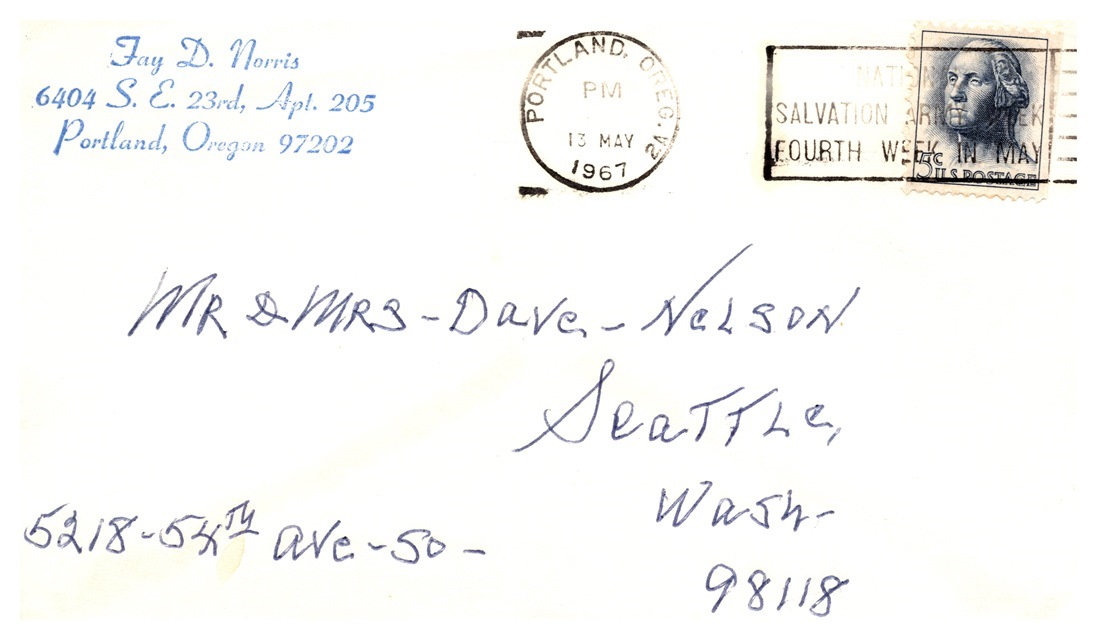 Fay D. Norris
6404 S. E. 23rd, Apt. 205
Portland, Oregon 97202
PORTLAND, OREG.
PM
13 MAY
1967
NATION
SALVATION ARMY WEEK
FOURTH WEEK IN MAY
5c U.S. POSTAGE
MR & MRS - Dave - NeLSON
SeaTTLe,
Wash-
98118
5218-54TH ave-so-